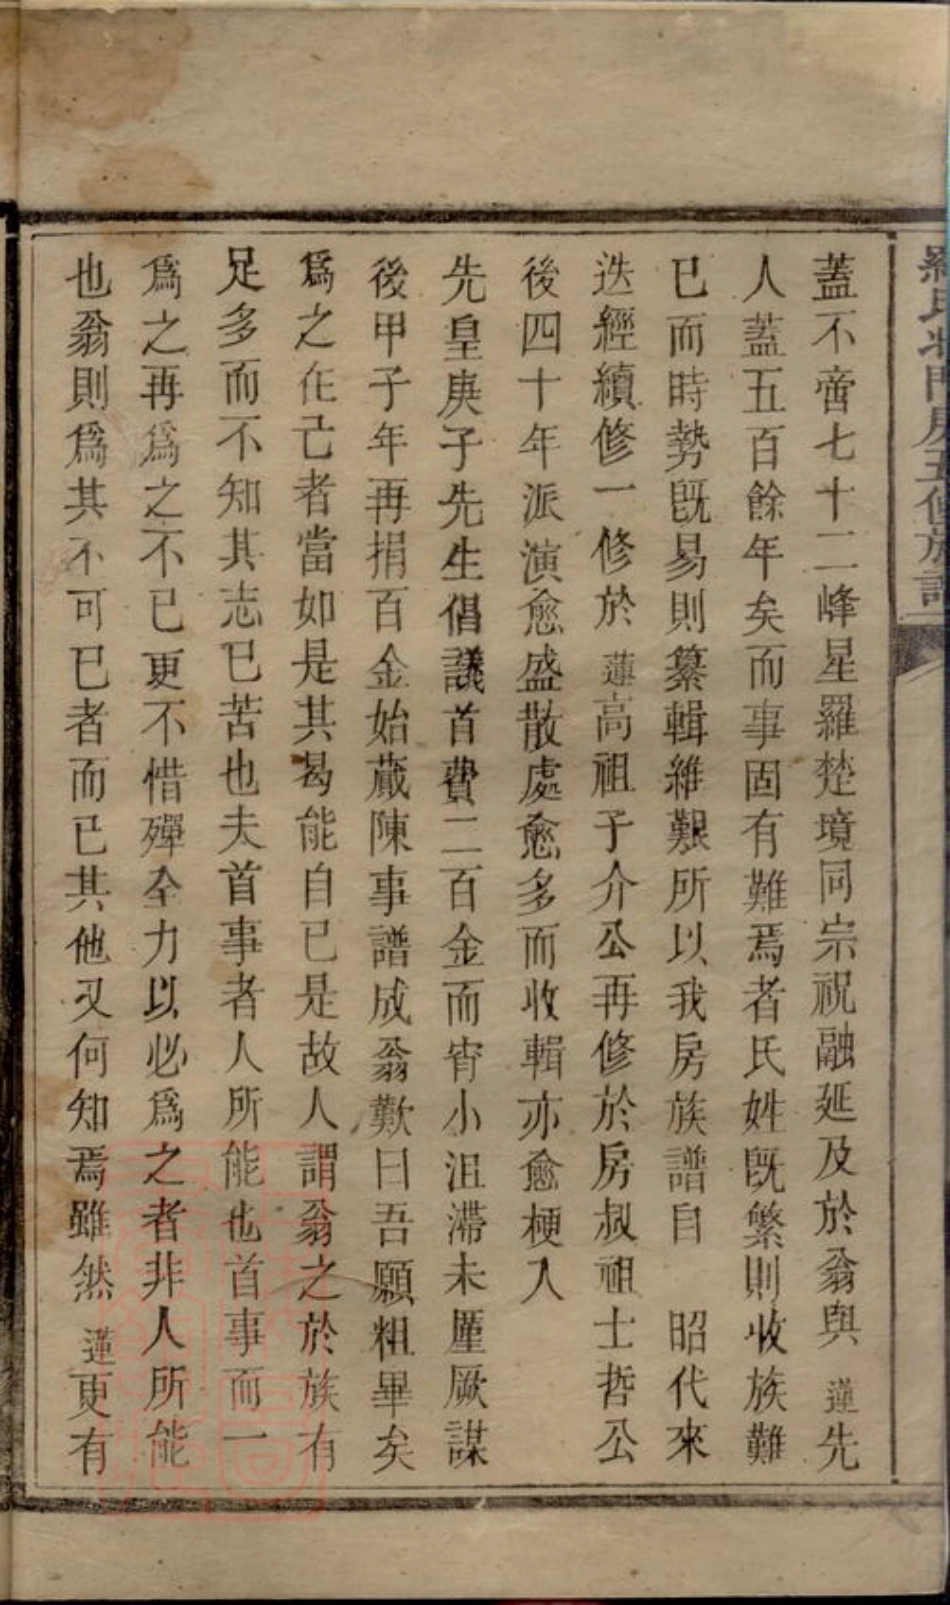 氏 門房五修族譜
蓋不啻七十二峰星羅楚境同宗祝融延及於翁與蓮先
人蓋五百餘年矣而事固有難焉者氏姓既繁則收族難
已而時勢既易則纂輯維艱所以我房族譜自 昭代來
迭經續修一修於蓮高祖于介公再修於房叔祖士哲公
後四十年派演愈盛散處愈多而收輯亦愈梗入
先皇庚子先生倡議首費二百金而宵小沮滯未厪厥謀
後甲子年再捐百金始蕆陳事譜成翁歎曰吾願粗畢矣
爲之在己者當如是其曷能自已是故人謂翁之於族有
足多而不知其志已苦也夫首事者人所能也首事而一
爲之再爲之不已更不惜殫全力以必爲之者非人所能
也翁則爲其不可已者而已其他又何知焉雖然蓮更有